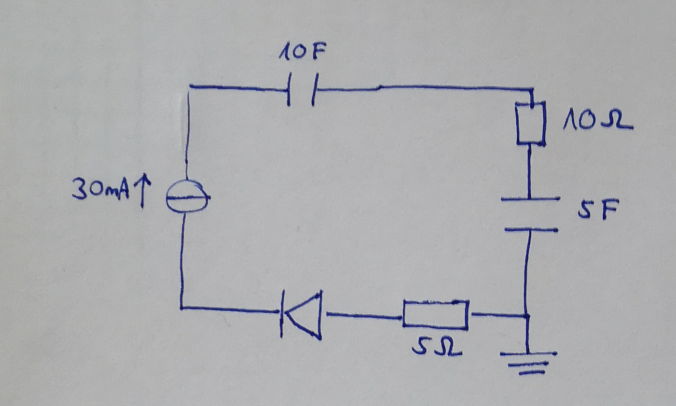 10F
10Ω
30mA↑
5F
5Ω